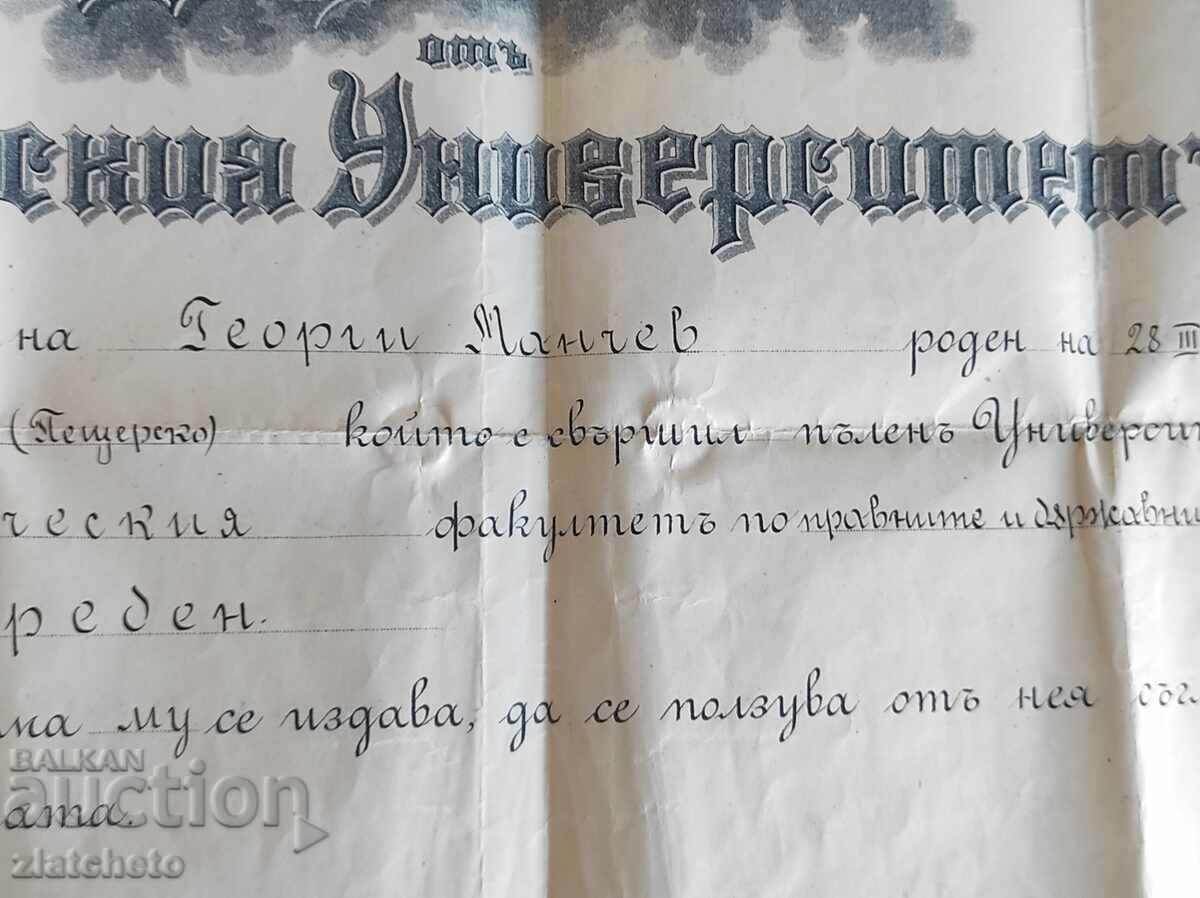 отъ
ския Университетъ
на Георги Манчев роден на 28 III
(Пещерско) който е свършил пъленъ Универси
ческия факултетъ по правните и държавни
реден.
ма му се издава, да се ползува отъ нея съг
ата.
BALKAN
auction
zlatcheto